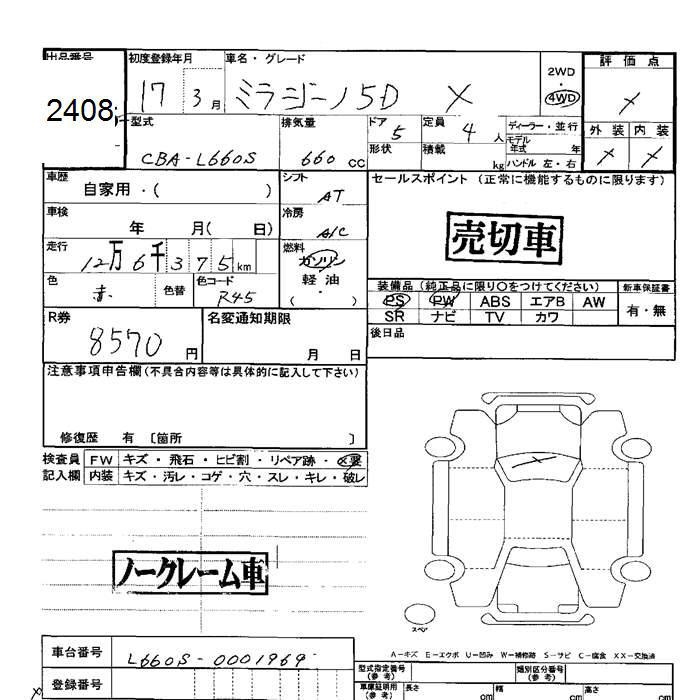 出品番号 初度登録年月 車名・グレード 評価点
2408 17 3月 ミラジーノ 5D X 2WD・4WD
型式 排気量 ドア 5 定員 4人 ディーラー・並行 外装 内装
CBA-L660S 660cc 形状 積載 kg モデル年式 年 ハンドル 左・右
車歴 自家用・( ) シフト AT セールスポイント (正常に機能するものに限ります)
車検 年 月( 日) 冷房 A/C 売切車
走行 12万6千375km 燃料 ガソリン 軽油 ( )
色 赤 色替 色コード R45 装備品 (純正品に限り○をつけてください) 新車保証書
PS PW ABS エアB AW 有・無
SR ナビ TV カワ
R券 8570円 名変通知期限 月 日 後日品
注意事項申告欄(不具合内容等は具体的に記入して下さい)
修復歴 有 [箇所 ]
検査員 FW キズ・飛石・ヒビ割・リペア跡・×要
記入欄 内装 キズ・汚レ・コゲ・穴・スレ・キレ・破レ
ノークレーム車
スペア
A-キズ E-エクボ U-凹み W-補修跡 S-サビ C-腐食 XX-交換済
車台番号 L660S-0001969
登録番号
型式指定番号(参考) 類別区分番号(参考)
車庫証明用(参考) 長さ cm 幅 cm 高さ cm